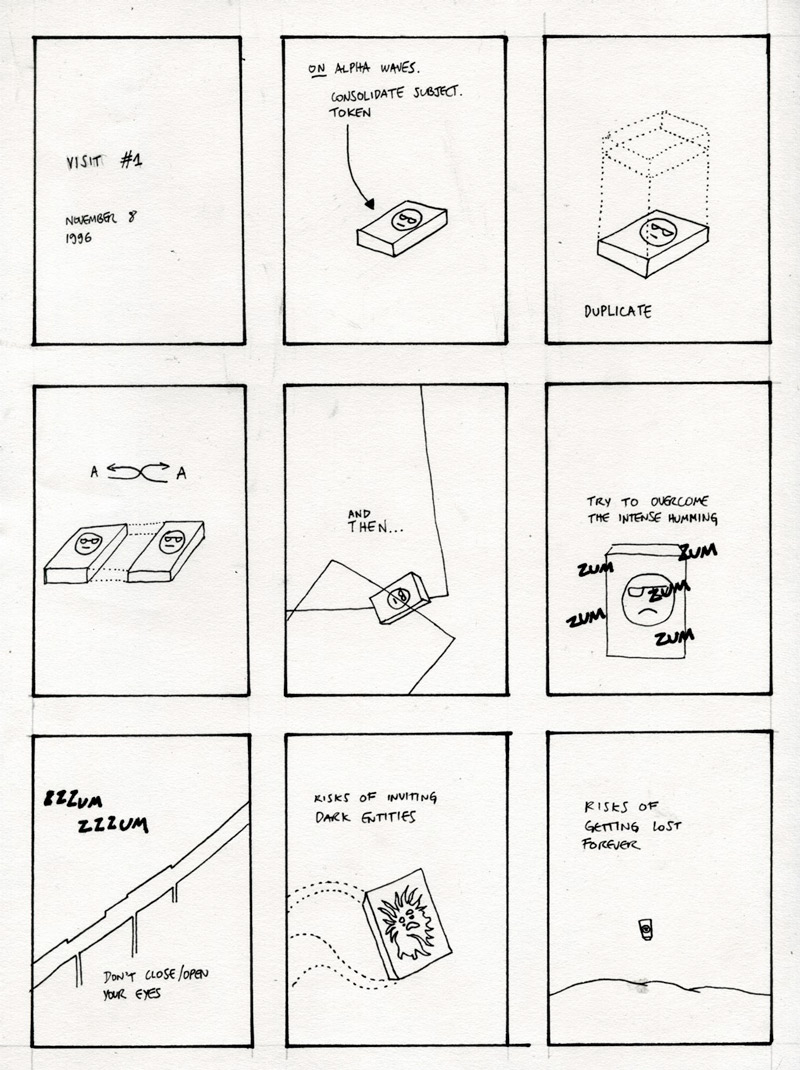 VISIT #1
NOVEMBER 8
1996
ON ALPHA WAVES.
CONSOLIDATE SUBJECT.
TOKEN
DUPLICATE
A A
AND
THEN...
TRY TO OVERCOME
THE INTENSE HUMMING
ZUM
ZUM
ZUM
ZUM
ZUM
ZZZUM
ZZZUM
DON'T CLOSE/OPEN
YOUR EYES
RISKS OF INVITING
DARK ENTITIES
RISKS OF
GETTING LOST
FOREVER